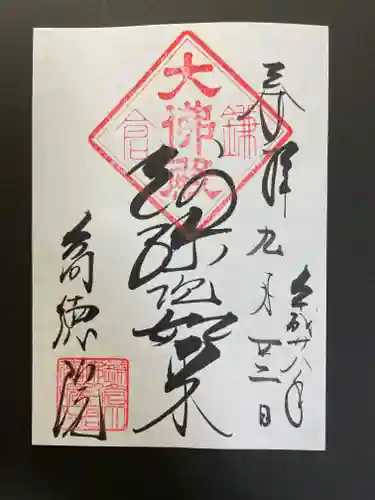 奉拝
平成廿八年
九月廿二日
大佛殿
鎌倉
阿弥陀如来
高徳院